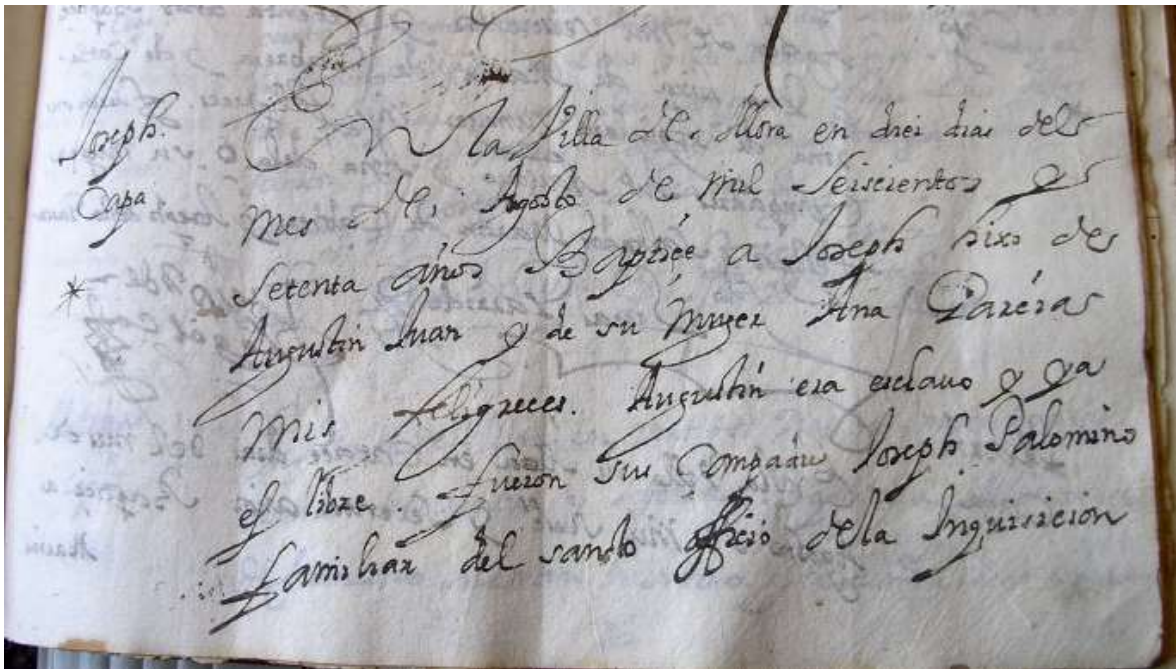 Joseph.
Capa
En la Villa de Mora en diez dias del
mes de Agosto de mil Seiscientos y
Setenta años Baptice a Joseph hixo de
Augustin Juan y de su Muger Ana Pareras
mis feligreces. Augustin era esclauo y ya
es libre. fueron sus Compadres Joseph Palomino
familiar del sancto officio de la Inquisicion